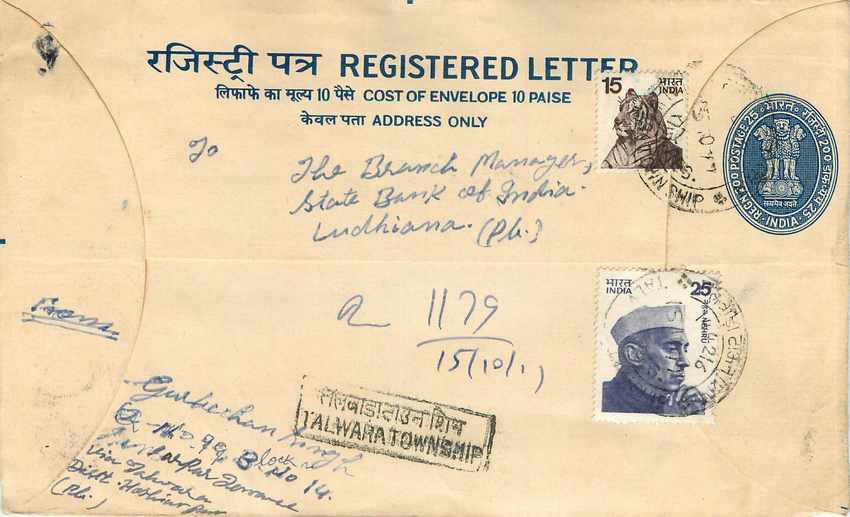 रजिस्ट्री पत्र REGISTERED LETTER
लिफाफे का मूल्य 10 पैसे COST OF ENVELOPE 10 PAISE
केवल पता ADDRESS ONLY
15 भारत INDIA
REGN 2·00 POSTAGE·25 भारत रजिस्ट्री 2·00 डाक-व्यय·25 INDIA
सत्यमेव जयते
To
The Branch Manager,
State Bank of India.
Ludhiana. (Pb.)
SHIP
भारत INDIA 25
नेहरू NEHRU
R 1179
15/10/
From
तलवाडा टाउन शिप
TALWARA TOWNSHIP
Gurbachan Singh
Block No 14.
Via Talwara
Distt. Hoshiarpur
(Pb.)